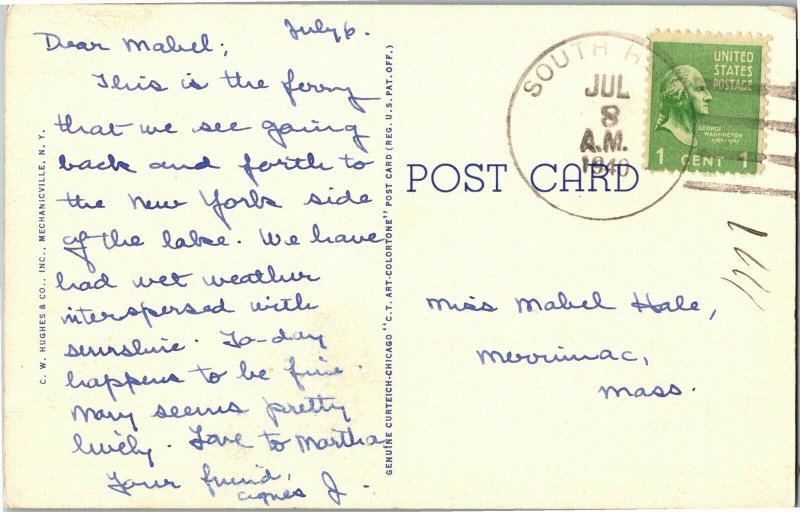 July 6.
Dear Mabel;
This is the ferry
that we see going
back and forth to
the New York side
of the lake. We have
had wet weather
interspersed with
sunshine. To-day
happens to be fine.
Mary seems pretty
lively. Love to Martha
Your friend,
Agnes J.
C. W. HUGHES & CO., INC., MECHANICVILLE, N. Y.
GENUINE CURTEICH-CHICAGO "C.T. ART-COLORTONE" POST CARD (REG. U.S. PAT. OFF.)
POST CARD
SOUTH H
JUL
8
A.M.
1940
UNITED
STATES
POSTAGE
GEORGE
WASHINGTON
1789-1797
1 CENT 1
Miss Mabel Hale,
Merrimac,
Mass.